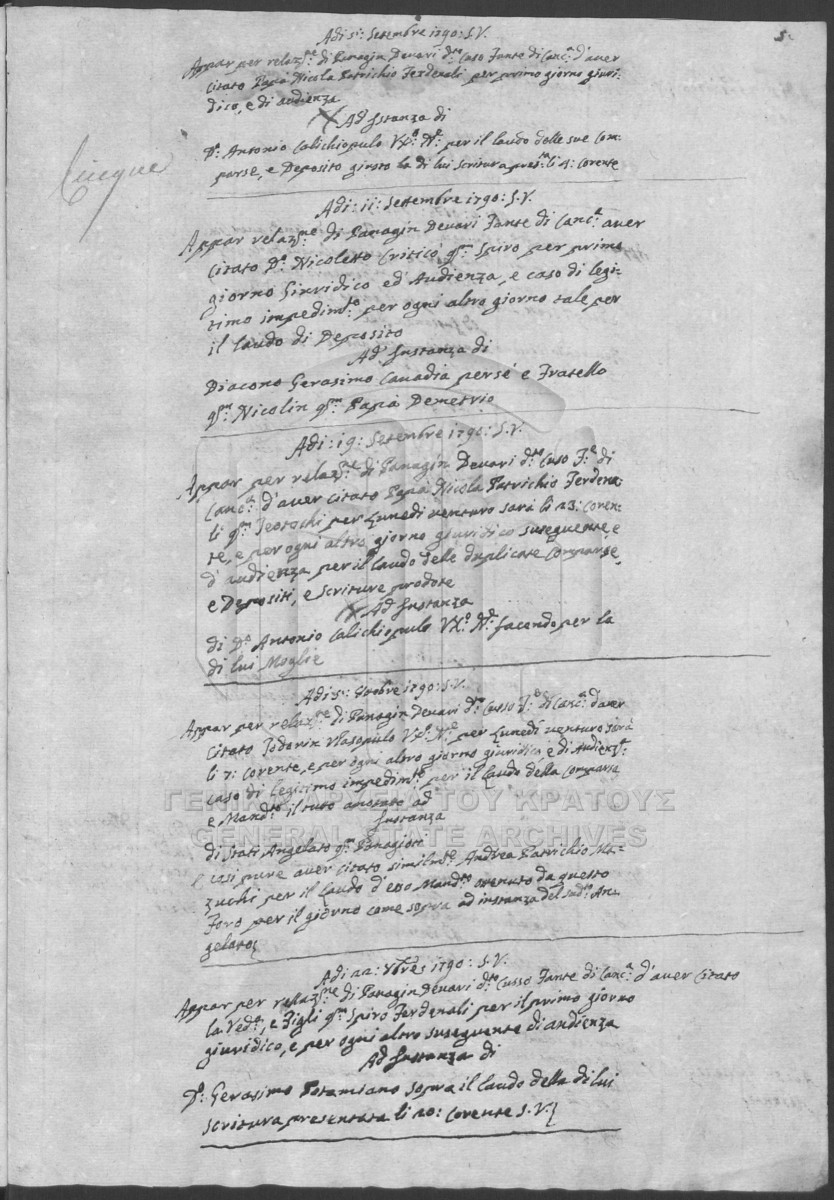 5.
Adi 5: Settembre 1790: S.V.
Appar per relaz:ne di Panagin Devari d:to Caso Fante di Canc:a d'aver
citato Papà Nicola Patrichio Ferdenali per primo giorno giuri-
dico, e di audienza
Ad Instanza di
D:n Antonio Calichiopulo VX:o N:e per il laudo delle sue Com-
parse, e Deposito giusto la di lui scritura pres:ta li 4: corente
Cinque
Adi: 11: Settembre 1790: S.V.
Appar relaz:ne di Panagin Devari Fante di Canc:a aver
citato D:n Nicoletto Criticò q:m Spiro per primo
giorno Giuridico ed Audienza, e caso di legi-
timo impedim:to per ogni altro giorno tale per
il laudo di Deposito
Ad Instanza di
Diacono Gerasimo Canadià per sé e Fratello
q:m Nicolin q:m Papà Demetrio
Adi: 19: Settembre 1790: S.V.
Appar per relaz:ne di Panagin Devari d:to Cuso F:e di
Canc:a d'aver citato Papà Nicola Patrichio Ferdena-
li q:m Teotochi per Lunedì venturo sarà li 23: coren-
te, e per ogni altro giorno giuridico suseguente, e
d'audienza per il laudo delle duplicate comparse,
e Depositi, e scriture prodote
Ad Instanza
di D:n Antonio Calichiopulo VX:o N:e facendo per la
di lui Moglie
Adi 5: Ottobre 1790: S.V.
Appar per relaz:ne di Panagin Devari d:to Cusso F:e di Canc:a d'aver
citato Todorin Vlasopulo VX:o N:e per Lunedì venturo sarà
li 7: corente, e per ogni altro giorno giuridico, e di Audienz:a
caso di legitimo impedim:to per il laudo della comparsa
e Mand:to il tuto anotato ad
Instanza
di Stati Angelato q:m Panagioti
e così pure aver citato similm:te Andrea Patrichio Ma-
zuchi per il laudo d'esso Mand:to otenuto da questo
Foro per il giorno come sopra ad instanza del sud:to An-
gelato
Adi 22: Xbres 1790: S.V.
Appar per relaz:ne di Panagin Devari d:to Cusso Fante di Canc:a d'aver citato
la Ved:a, e Figli q:m Spiro Ferdenali per il primo giorno
giuridico, e per ogni altro suseguente di audienza
Ad Instanza di
D:n Gerasimo Potamiano sopra il laudo della di lui
scritura presentata li 20: corente S.V.
ΓΕΝΙΚΑ ΑΡΧΕΙΑ ΤΟΥ ΚΡΑΤΟΥΣ
GENERAL STATE ARCHIVES